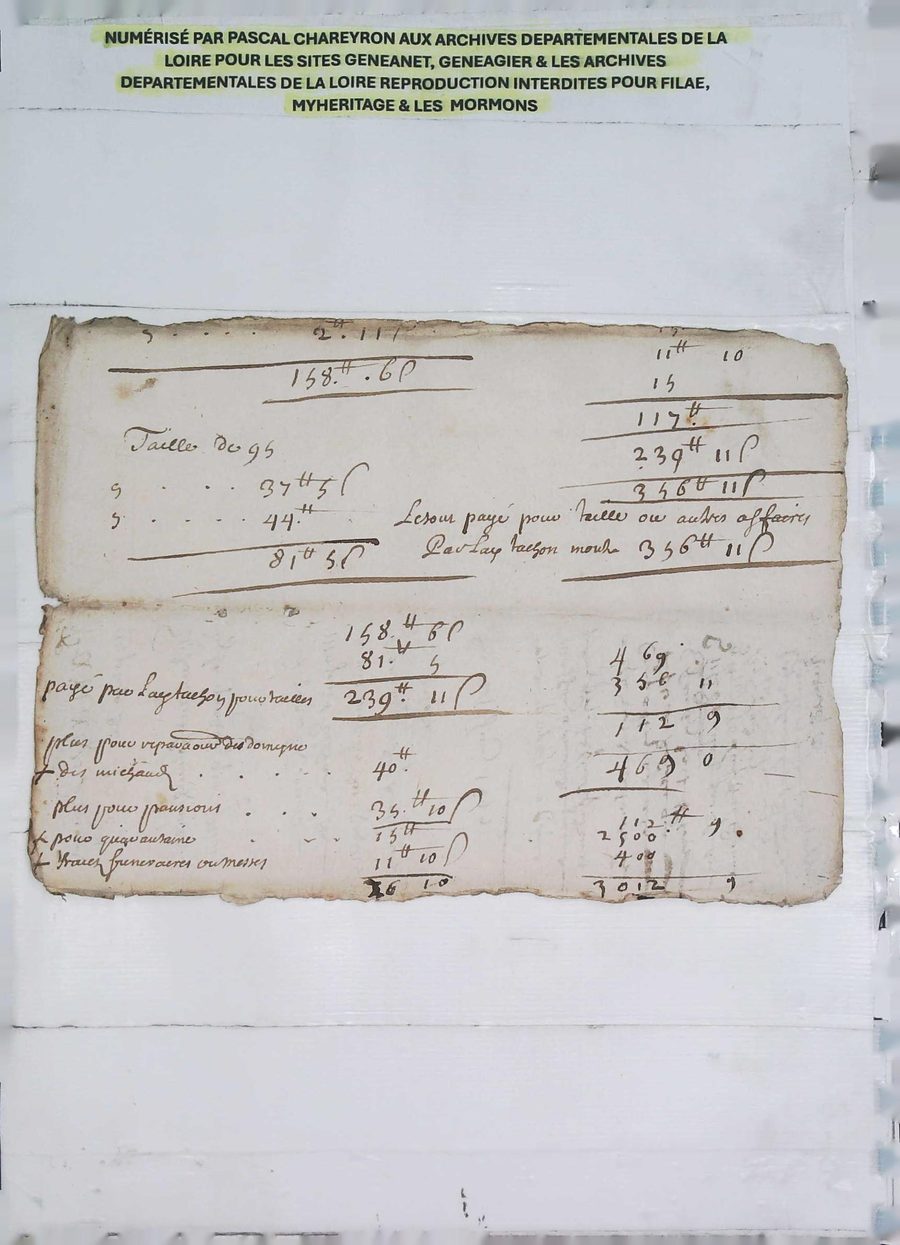 NUMÉRISÉ PAR PASCAL CHAREYRON AUX ARCHIVES DEPARTEMENTALES DE LA
LOIRE POUR LES SITES GENEANET, GENEAGIER & LES ARCHIVES
DEPARTEMENTALES DE LA LOIRE REPRODUCTION INTERDITES POUR FILAE,
MYHERITAGE & LES MORMONS
5 . . . . 2₶ 11ſ
158₶ . 6ſ
Taille de 95
5 . . . 37₶ 5ſ
5 . . . . 44₶
81₶ 5ſ
11₶ 10
15
117₶
239₶ 11ſ
356₶ 11ſ
Le tout payé pour taille ou autres affaires
Par Lay tachon monte 356₶ 11ſ
158₶ 6ſ
81₶ 5
payé par Lay tachon pour tailles 239₶ 11ſ
plus pour reparaõn du domeyne
+ des michaud . . . . . 40₶
plus pour pansions . . . . 35₶ 10ſ
+ pour quarantaine . . . 15₶
+ fraiet funeraires ou messes 11₶ 10ſ
10
469
356 11
112 9
469 0
112₶ 9
2500
400
3012 9